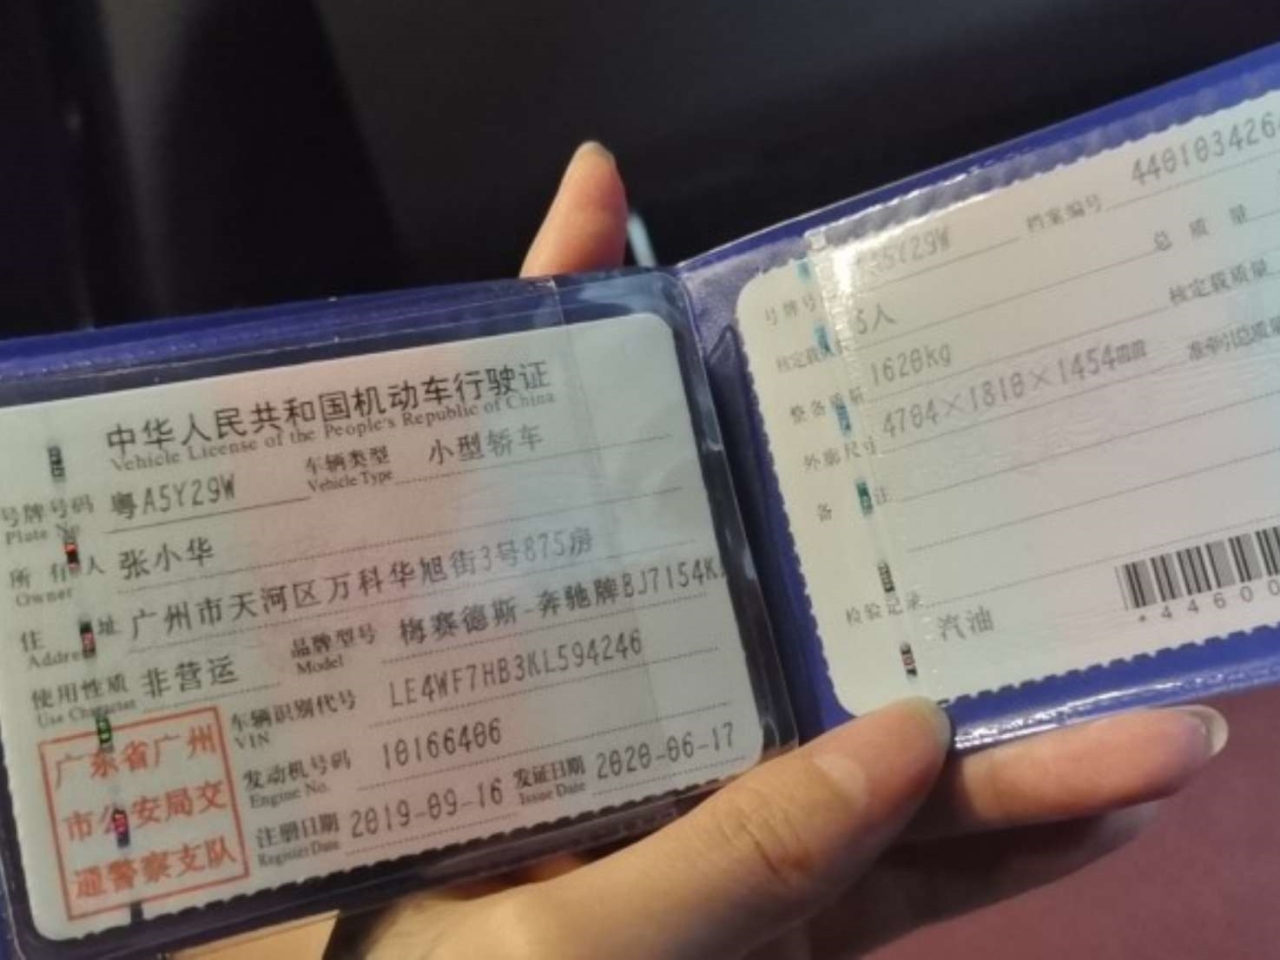 中华人民共和国机动车行驶证
Vehicle License of the People's Republic of China
号牌号码 粤A5Y29W 车辆类型 小型轿车
Plate Vehicle Type
所有人 张小华
Owner
住址 广州市天河区万科华旭街3号875房
Address
使用性质 非营运 品牌型号 梅赛德斯-奔驰牌BJ7154K
Use Character Model
车辆识别代号 LE4WF7HB3KL594246
VIN
发动机号码 10166406
Engine No.
注册日期 2019-09-16 发证日期 2020-06-17
Register Date Issue Date
广东省广州
市公安局交
通警察支队
号牌号 A5Y29W 档案编号 440103426
核定载 5人 总质量
整备质量 1620kg 核定载质量
外廓尺寸 4704×1810×1454mm 准牵引总质
备注
检验记录 汽油
*44600